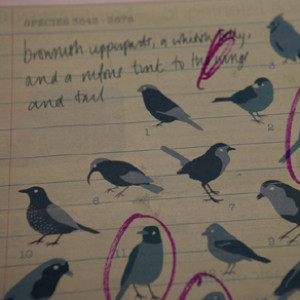 SPECIES 3042 - 3075
brownish upperparts, a whitish belly,
and a rufous tint to the wings
and tail
1
2
3
6
7
9
10
11